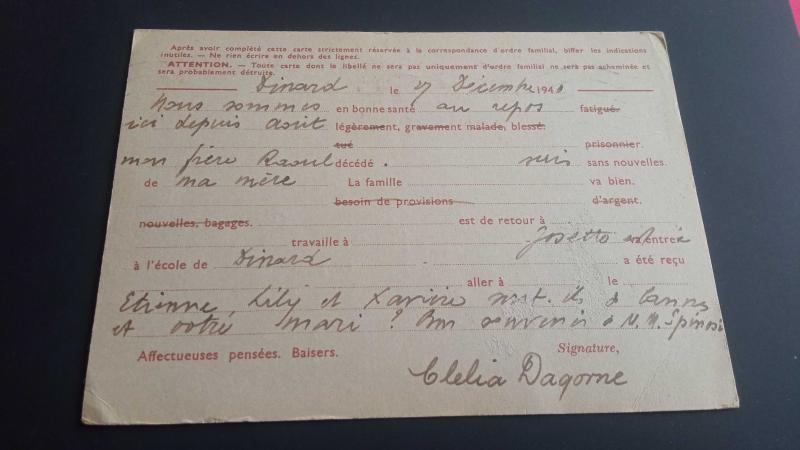 Après avoir complété cette carte strictement réservée à la correspondance d'ordre familial, biffer les indications
inutiles. — Ne rien écrire en dehors des lignes.
ATTENTION. — Toute carte dont le libellé ne sera pas uniquement d'ordre familial ne sera pas acheminée et
sera probablement détruite.
Dinard le 27 Décembre 1940
Nous sommes en bonne santé au repos fatigué.
ici depuis Août légèrement, gravement malade, blessé.
tué prisonnier.
mon frère Raoul décédé. suis sans nouvelles.
de ma mère La famille va bien.
besoin de provisions d'argent.
nouvelles, bagages. est de retour à
travaille à Josette entrée
à l'école de Dinard a été reçu
aller à le
Etienne, Lily et Xavière sont-ils à Cannes
et votre mari ? Bon souvenir à M. M. Spinosi
Affectueuses pensées. Baisers. Signature,
Clelia Dagorne